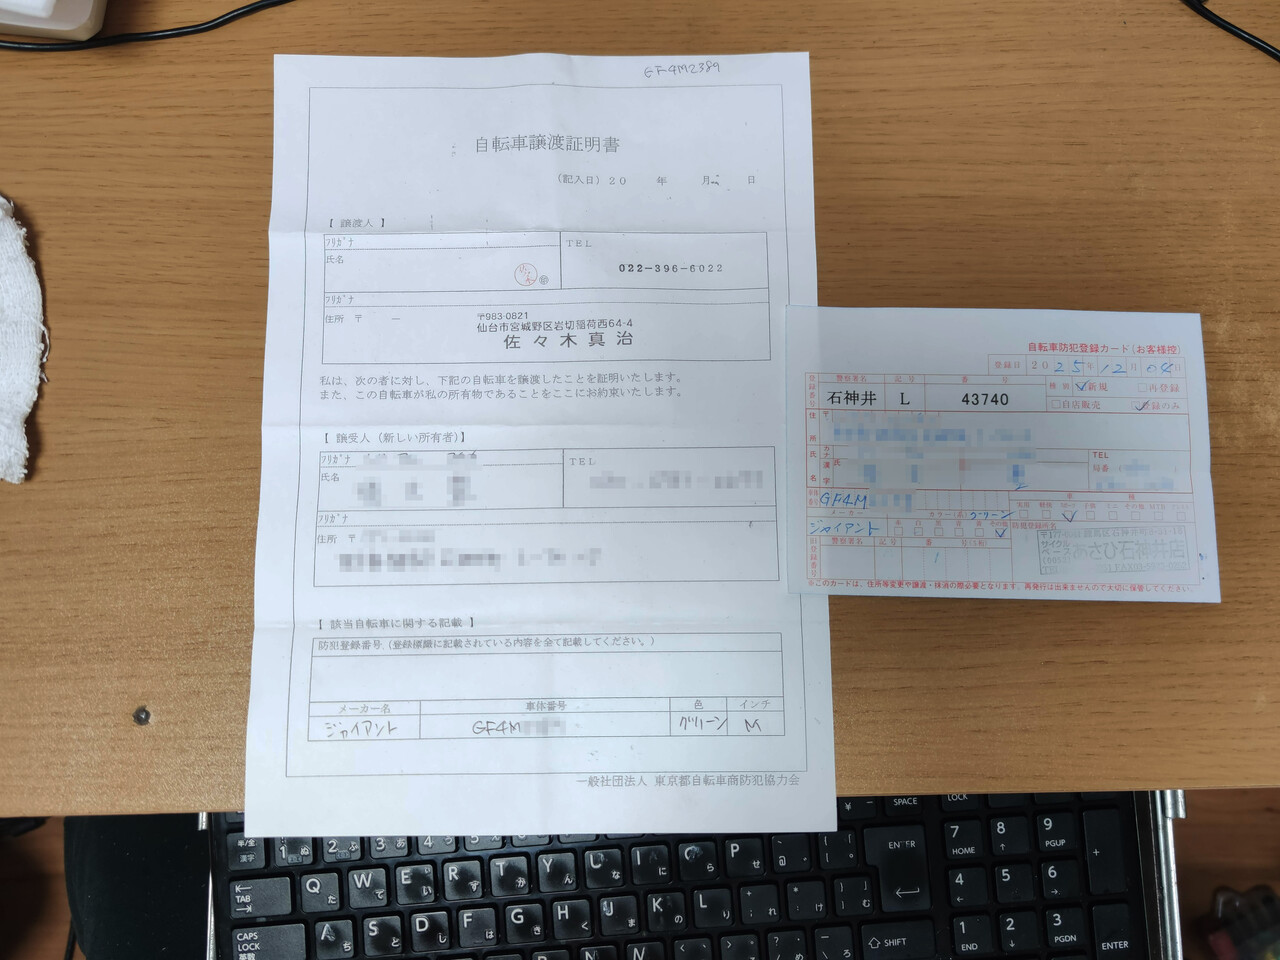 GF4M2389
自転車譲渡証明書
(記入日) 20 年 月 日
【 譲渡人 】
フリガナ
氏名
TEL
022-396-6022
フリガナ
住所 〒 －
〒983-0821
仙台市宮城野区岩切稲荷西64-4
佐々木真治
私は、次の者に対し、下記の自転車を譲渡したことを証明いたします。
また、この自転車が私の所有物であることをここにお約束いたします。
【 譲受人（新しい所有者）】
フリガナ
氏名
TEL
フリガナ
住所 〒
【 該当自転車に関する記載 】
防犯登録番号（登録標識に記載されている内容を全て記載してください。）
メーカー名 車体番号 色 インチ
ジャイアント GF4M グリーン M
一般社団法人 東京都自転車商防犯協力会
自転車防犯登録カード（お客様控）
登録日 2025年12月04日
登録番号 警察署名 記号 番号
石神井 L 43740
種別 新規 再登録
自店販売 登録のみ
住所 〒
氏名 フリガナ 漢字
TEL
局番
車体番号 GF4M
車種
メーカー カラー(系) グリーン
ジャイアント
防犯登録所名
旧登録番号 警察署名 記号 番号
サイクルベースあさひ石神井店
※このカードは、住所等変更や譲渡・抹消の際必要となります。再発行は出来ませんので大切に保管してください。
半/全 漢字 1 ぬ 2 ふ 3 あ 4 う 5 え
¥ － SPACE LOCK
TAB Q た W て E い R す T か Y ん U な I に O ら P せ @ ENTER
7 HOME 8 9 PGUP +
4 5 6
CAPS LOCK 英数 A ち S と D し F は G き H く J ま K の L り ; れ : け ] む
SHIFT 1 END 2 3 PGDN ENTER